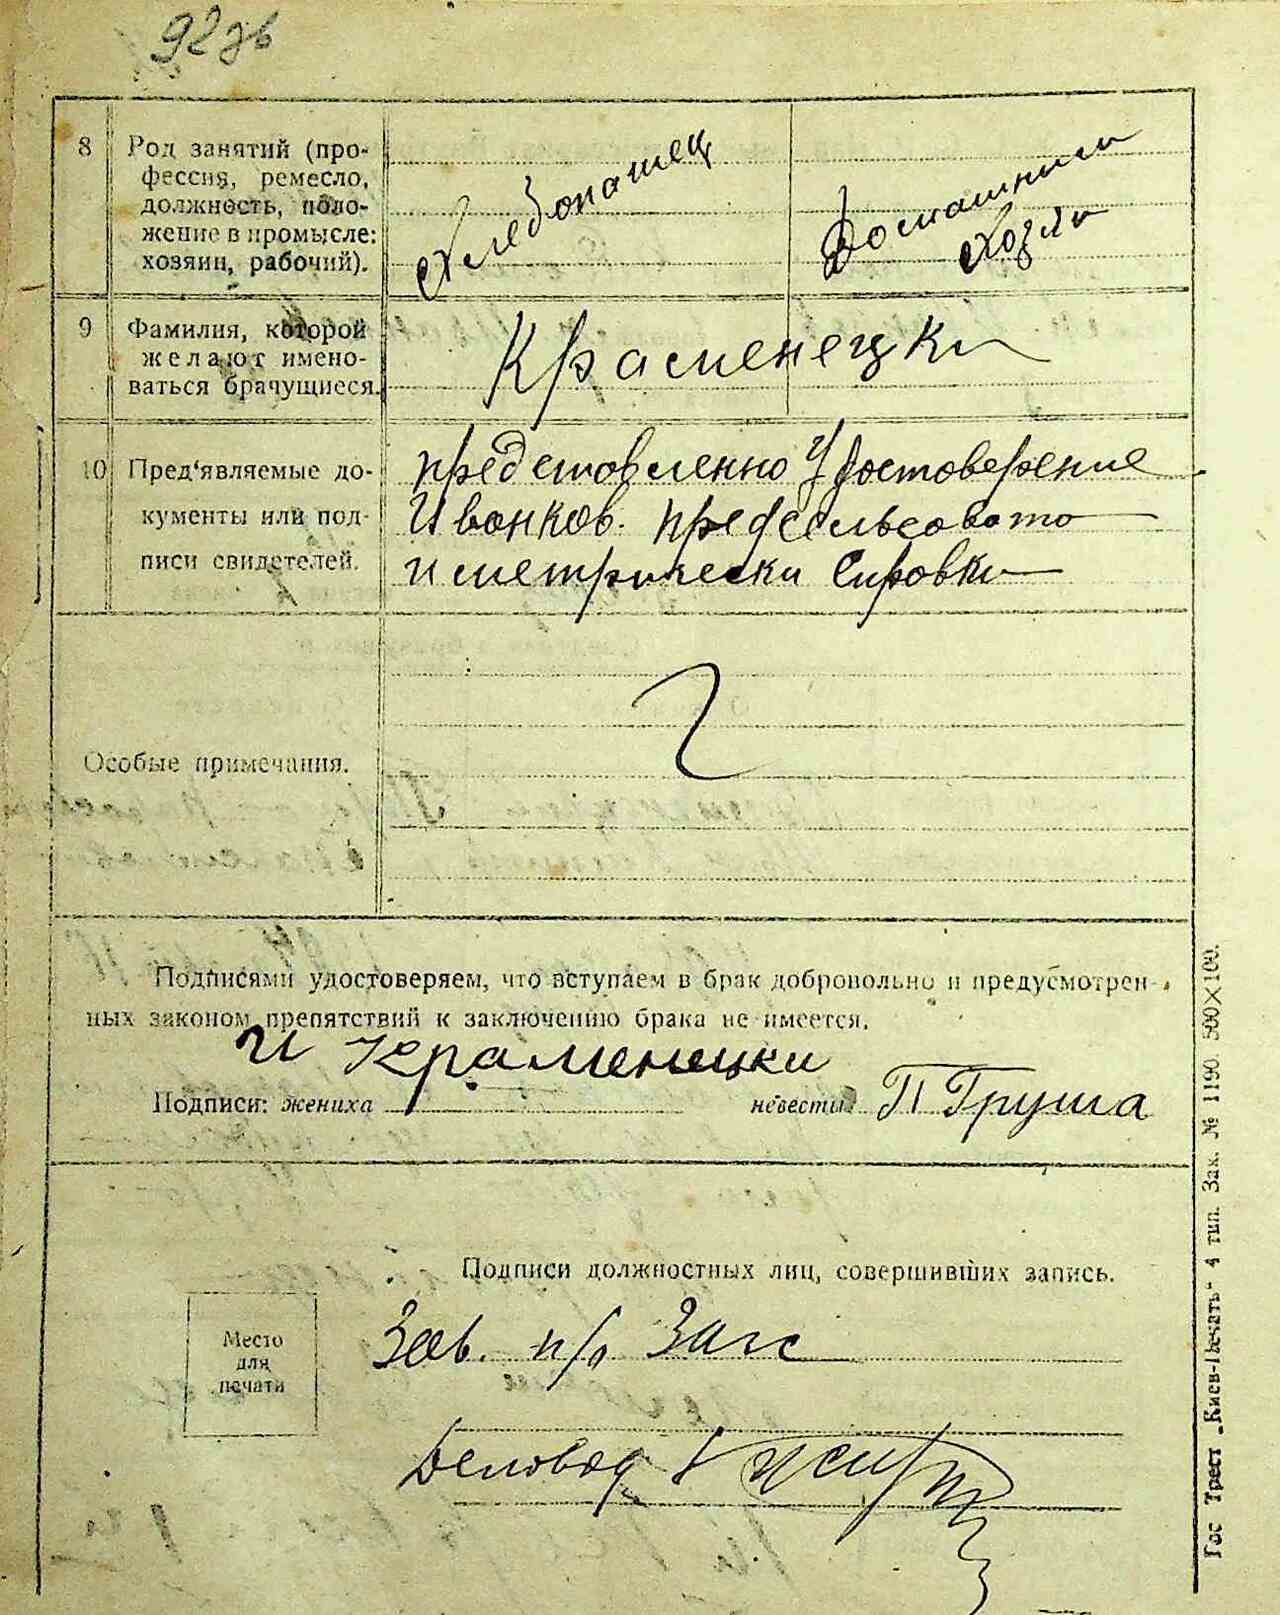 92 зв
8 Род занятий (про-
фессия, ремесло,
должность, поло-
жение в промысле:
хозяин, рабочий).
Хлебопашец
Домашним
Хозяи
9 Фамилия, которой
желают имено-
ваться брачущиеся.
Краменецки
10 Пред'являемые до-
кументы или под-
писи свидетелей.
представленно Удостоверение
Иванков. предсельсовата
и метрически Справки
Особые примечания.
Подписями удостоверяем, что вступаем в брак добровольно и предусмотрен-
ных законом препятствий к заключению брака не имеется.
И Краменецки
Подписи: жениха невесты П Груша
Подписи должностных лиц, совершивших запись.
Место
для
печати
Зав. п/о Загс
Деловод
Гос Трест „Киев-Печать" 4 тип. Зак. № 1190. 500×100.